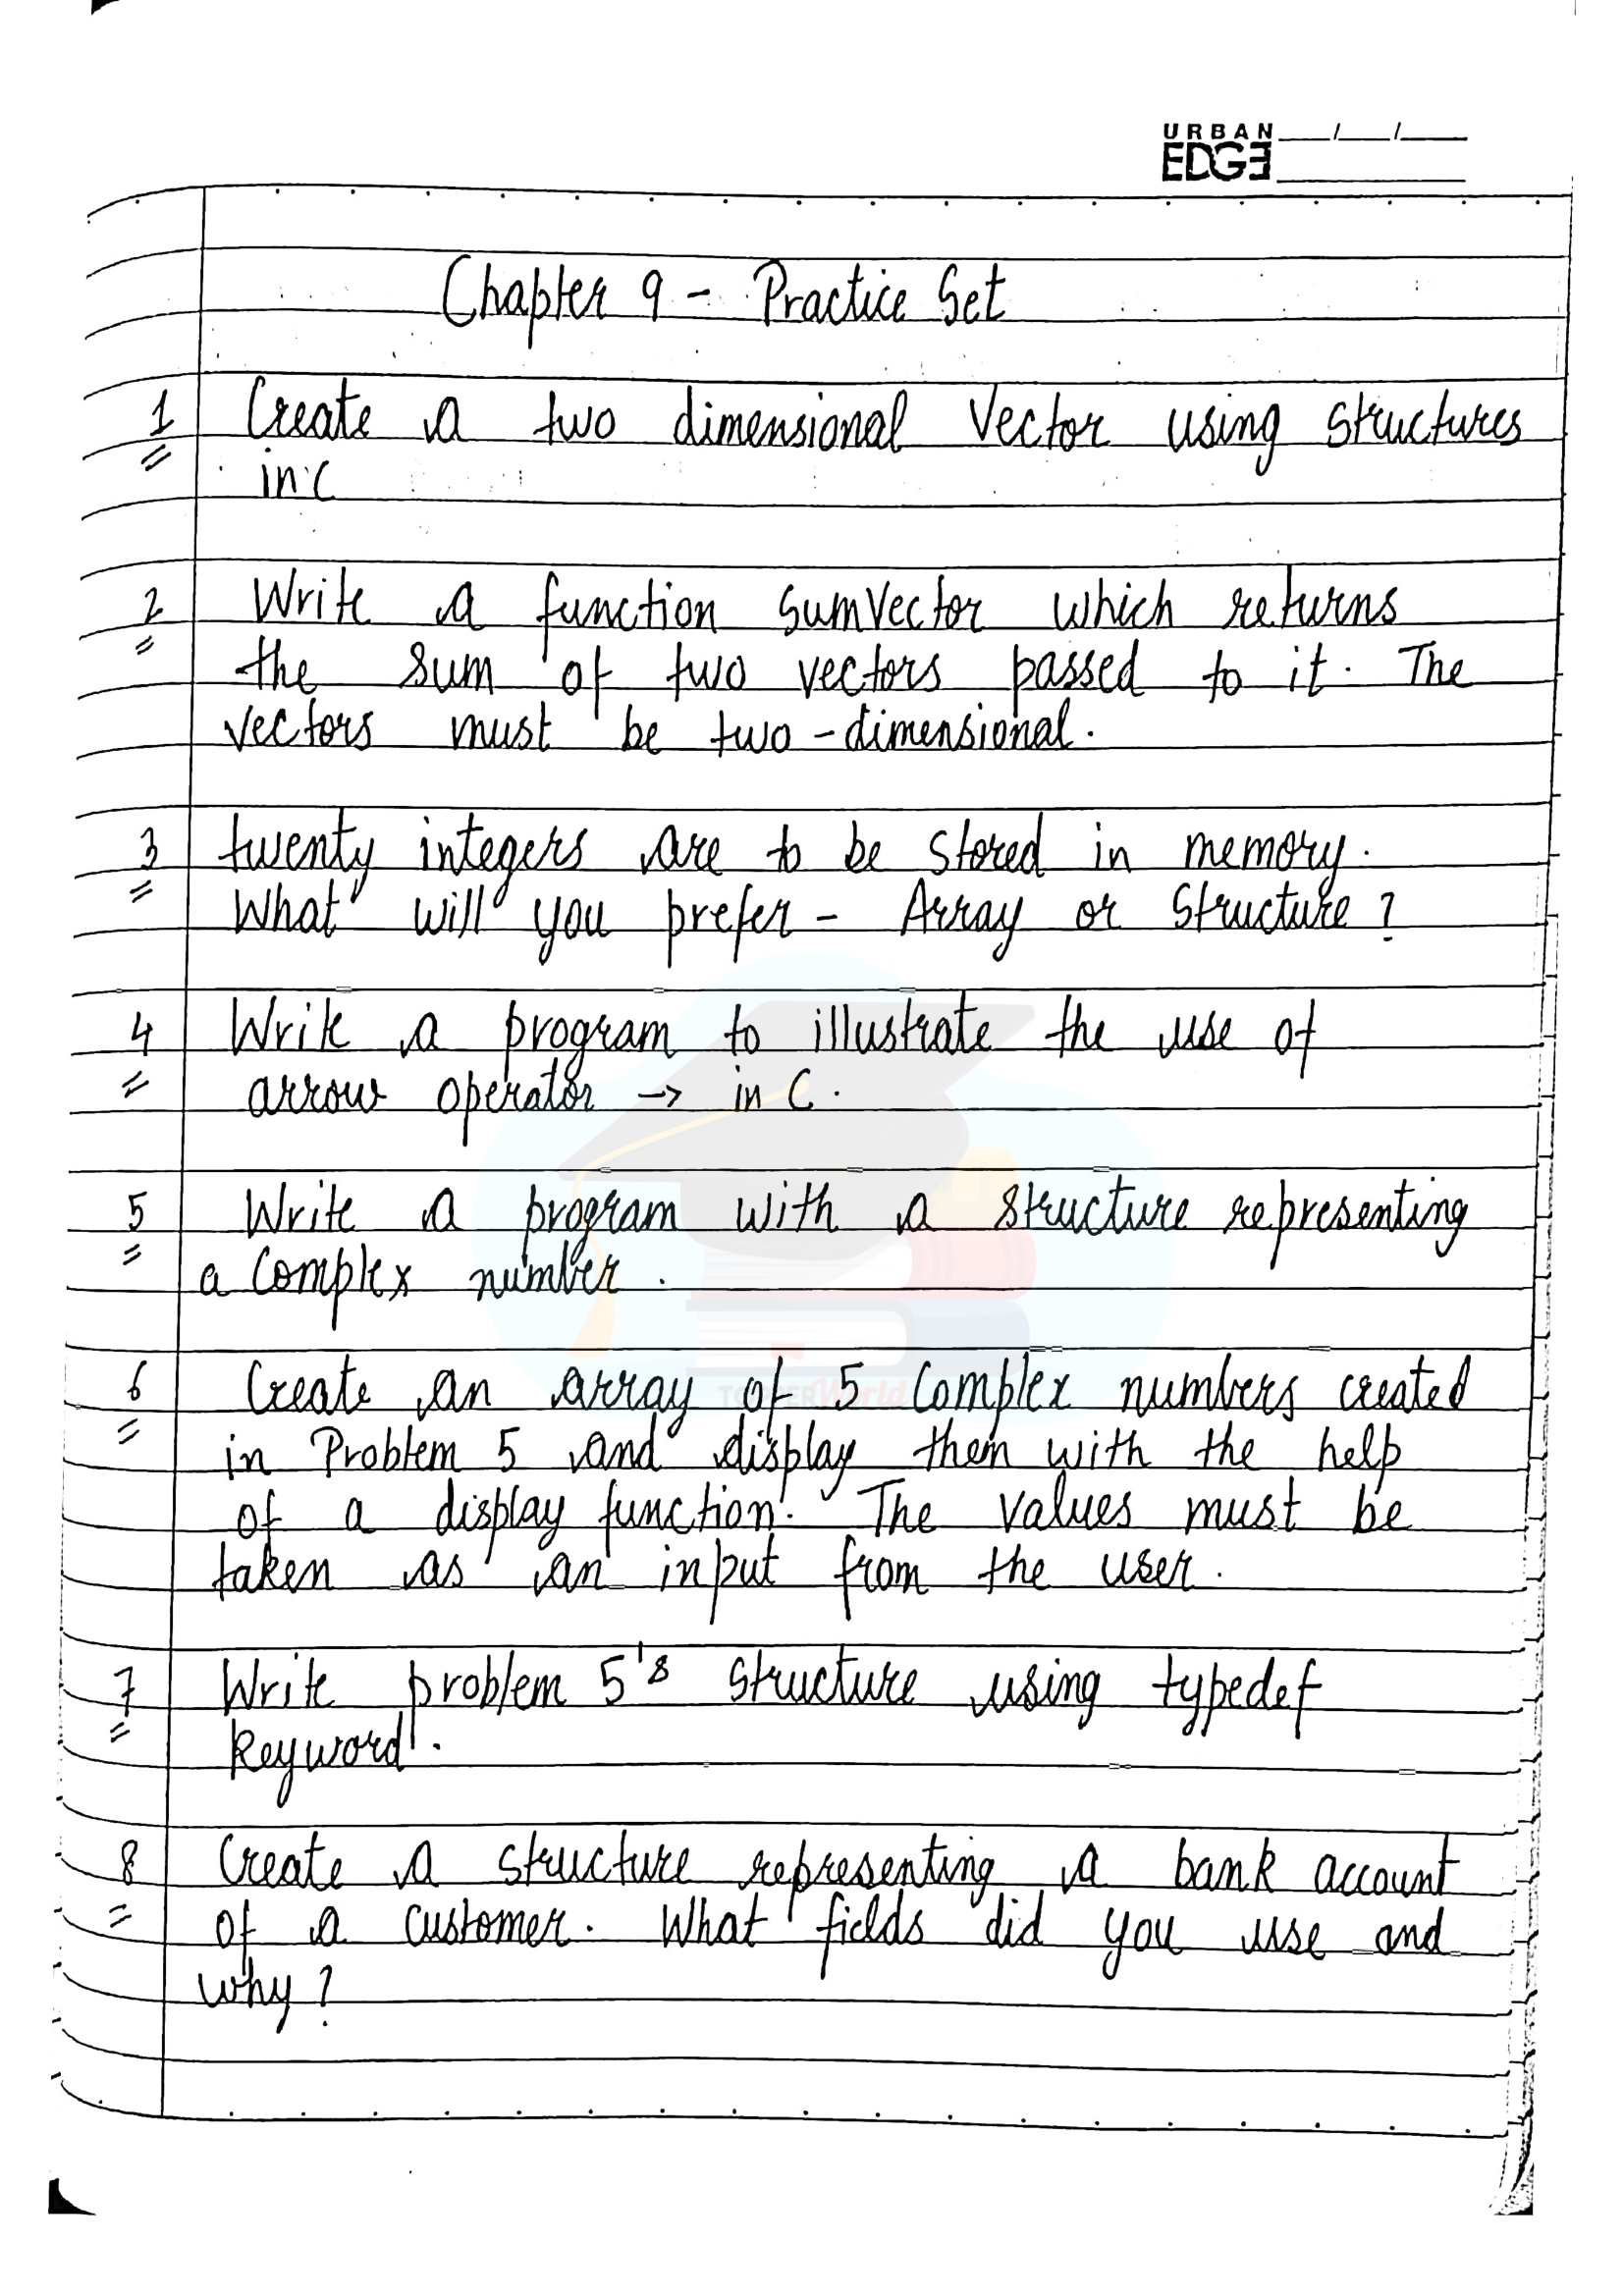 URBAN __/__/__
EDGE
Chapter 9 - Practice Set
1 Create a two dimensional Vector using structures
in C
2 Write a function sumVector which returns
the sum of two vectors passed to it. The
vectors must be two-dimensional.
3 twenty integers are to be stored in memory.
What will you prefer - Array or Structure?
4 Write a program to illustrate the use of
arrow operator -> in C.
5 Write a program with a structure representing
a Complex number.
6 Create an array of 5 Complex numbers created
in Problem 5 and display them with the help
of a display function. The values must be
taken as an input from the user.
7 Write problem 5's structure using typedef
keyword.
8 Create a structure representing a bank account
of a customer. What fields did you use and
why?
TOPPERWorld